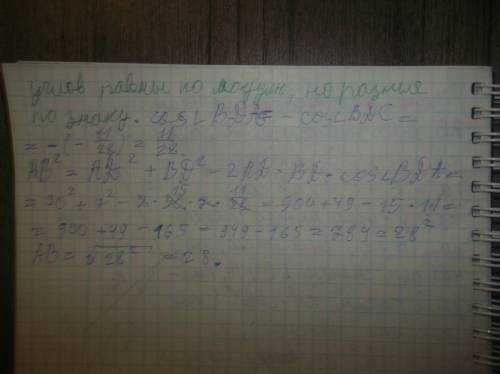 углов равны по модулю, но разные
по знаку. cos∠BDA = - cos∠BDC =
= -(-11/28) = 11/28
AB² = AD² + BD² - 2AD · BD · cos∠BDA =
= 30² + 7² - 2 · 30 · 7 · 11/28 = 900 + 49 - 15 · 11 =
= 900 + 49 - 165 = 949 - 165 = 784 = 28²
AB = √28² = 28.